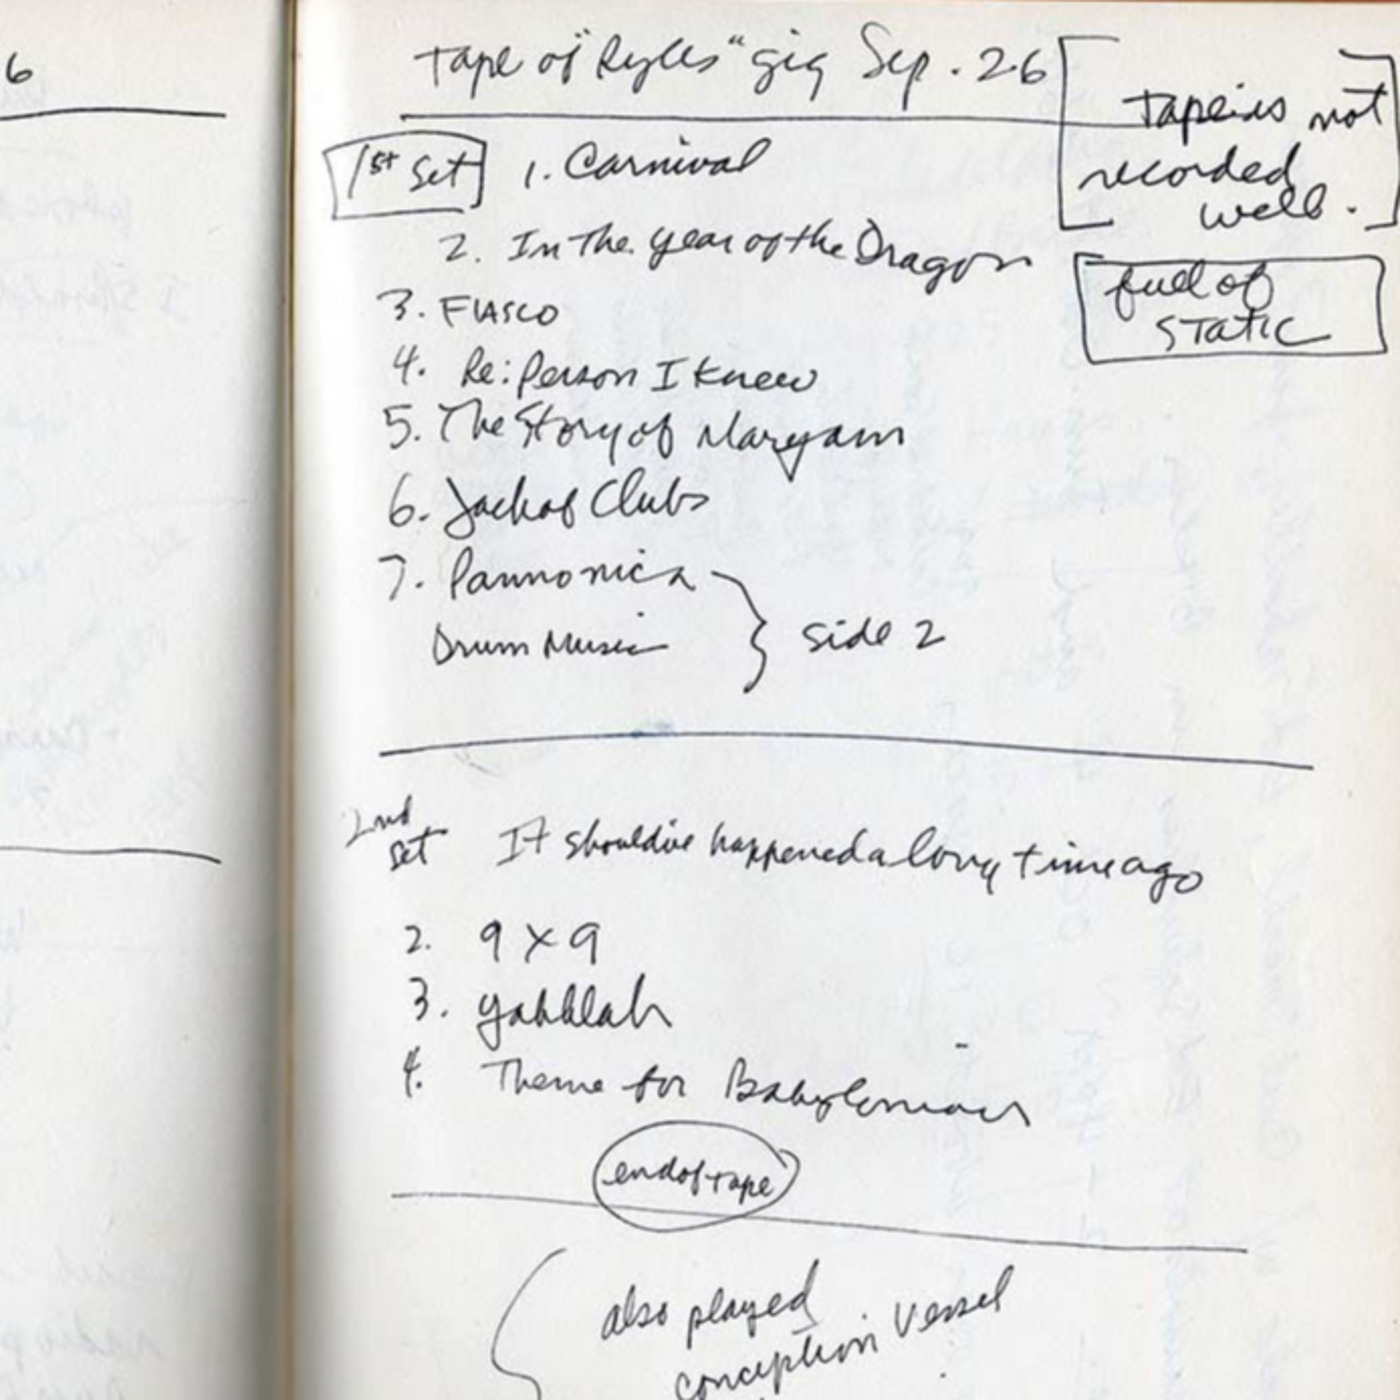 6
Tape of "Ryles" gig Sep. 26
Tape is not
recorded
well.
full of
STATIC
1st Set 1. Carnival
2. In The Year of the Dragon
3. FIASCO
4. Re: Person I Knew
5. The Story of Maryam
6. Jack of Clubs
7. Pannonica
Drum Music
side 2
2nd
set
It should've happened a long time ago
2. 9 x 9
3. Yahllah
4. Theme for Babylonians
end of tape
also played
conception vessel